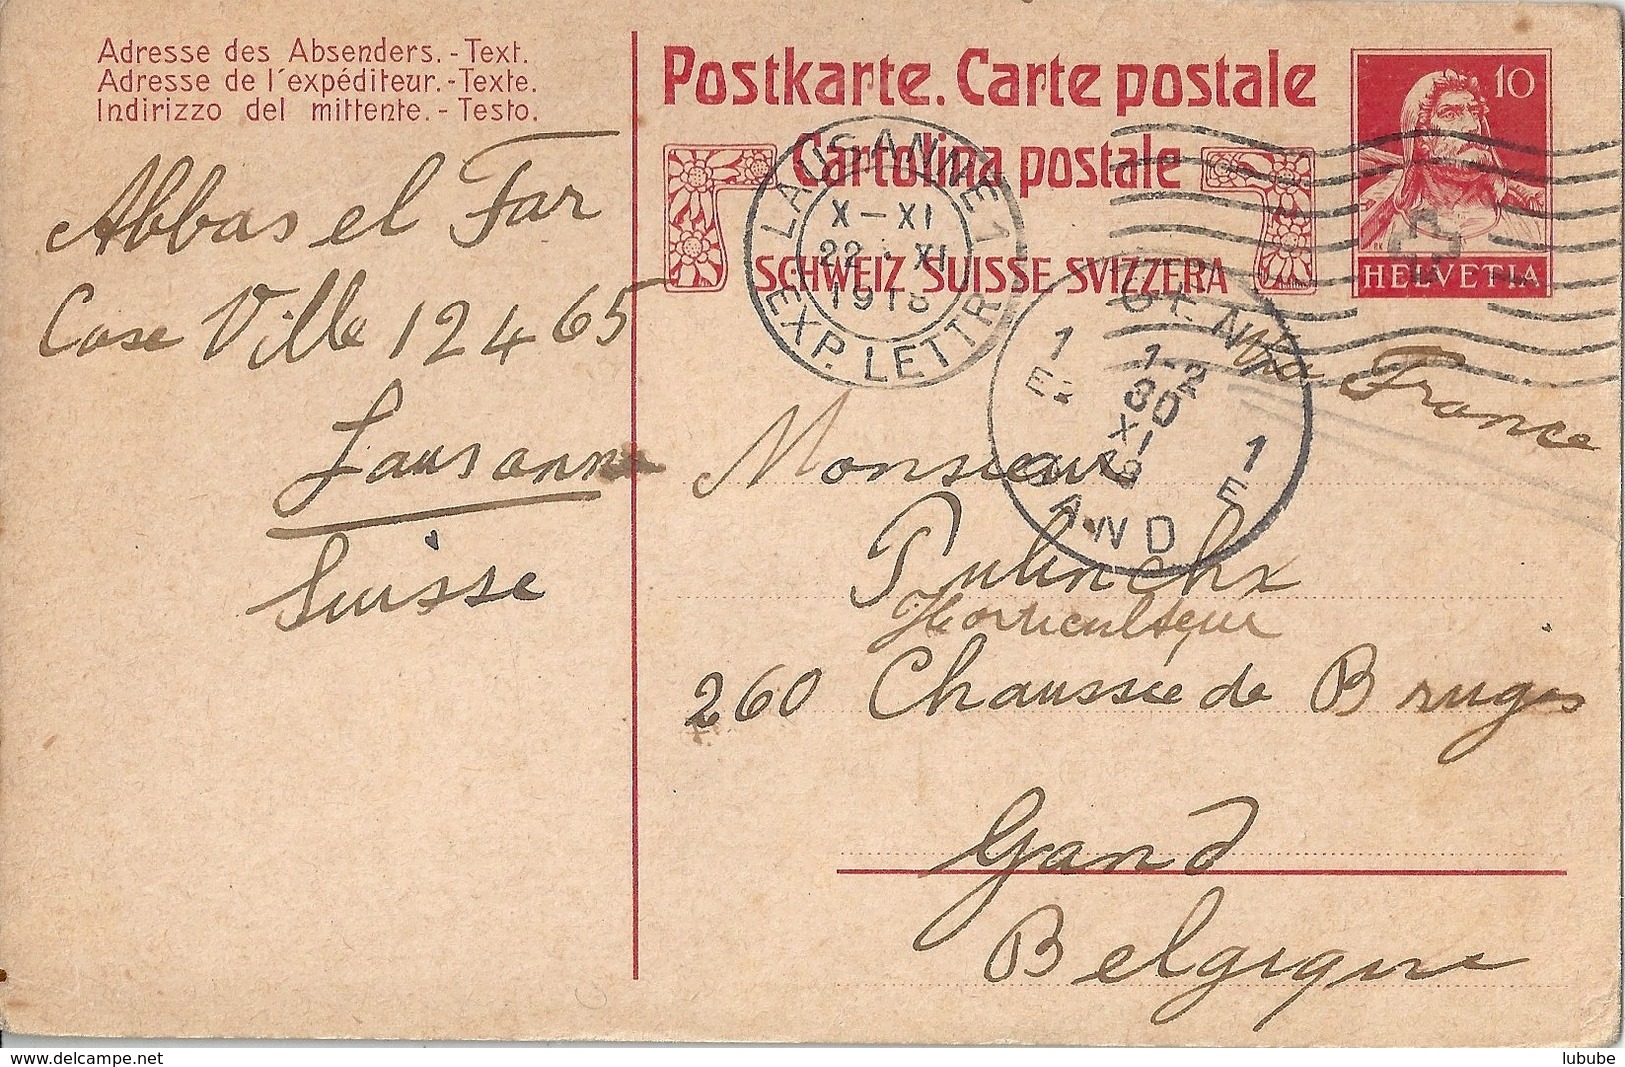 Adresse des Absenders. - Text.
Adresse de l'expéditeur. - Texte.
Indirizzo del mittente. - Testo.
Abbas el Far
Case Ville 12465
Lausanne
Suisse
Postkarte. Carte postale
Cartolina postale
SCHWEIZ SUISSE SVIZZERA
10
HELVETIA
LAUSANNE 1
X-XI
22.XI
1918
EXP. LETTR.
1 1-2
30
XI
1
E
WD
Via France
Monsieur
Pulinckx
Horticulteur
260 Chaussée de Bruges
Gand
Belgique
delcampe.net
lubube